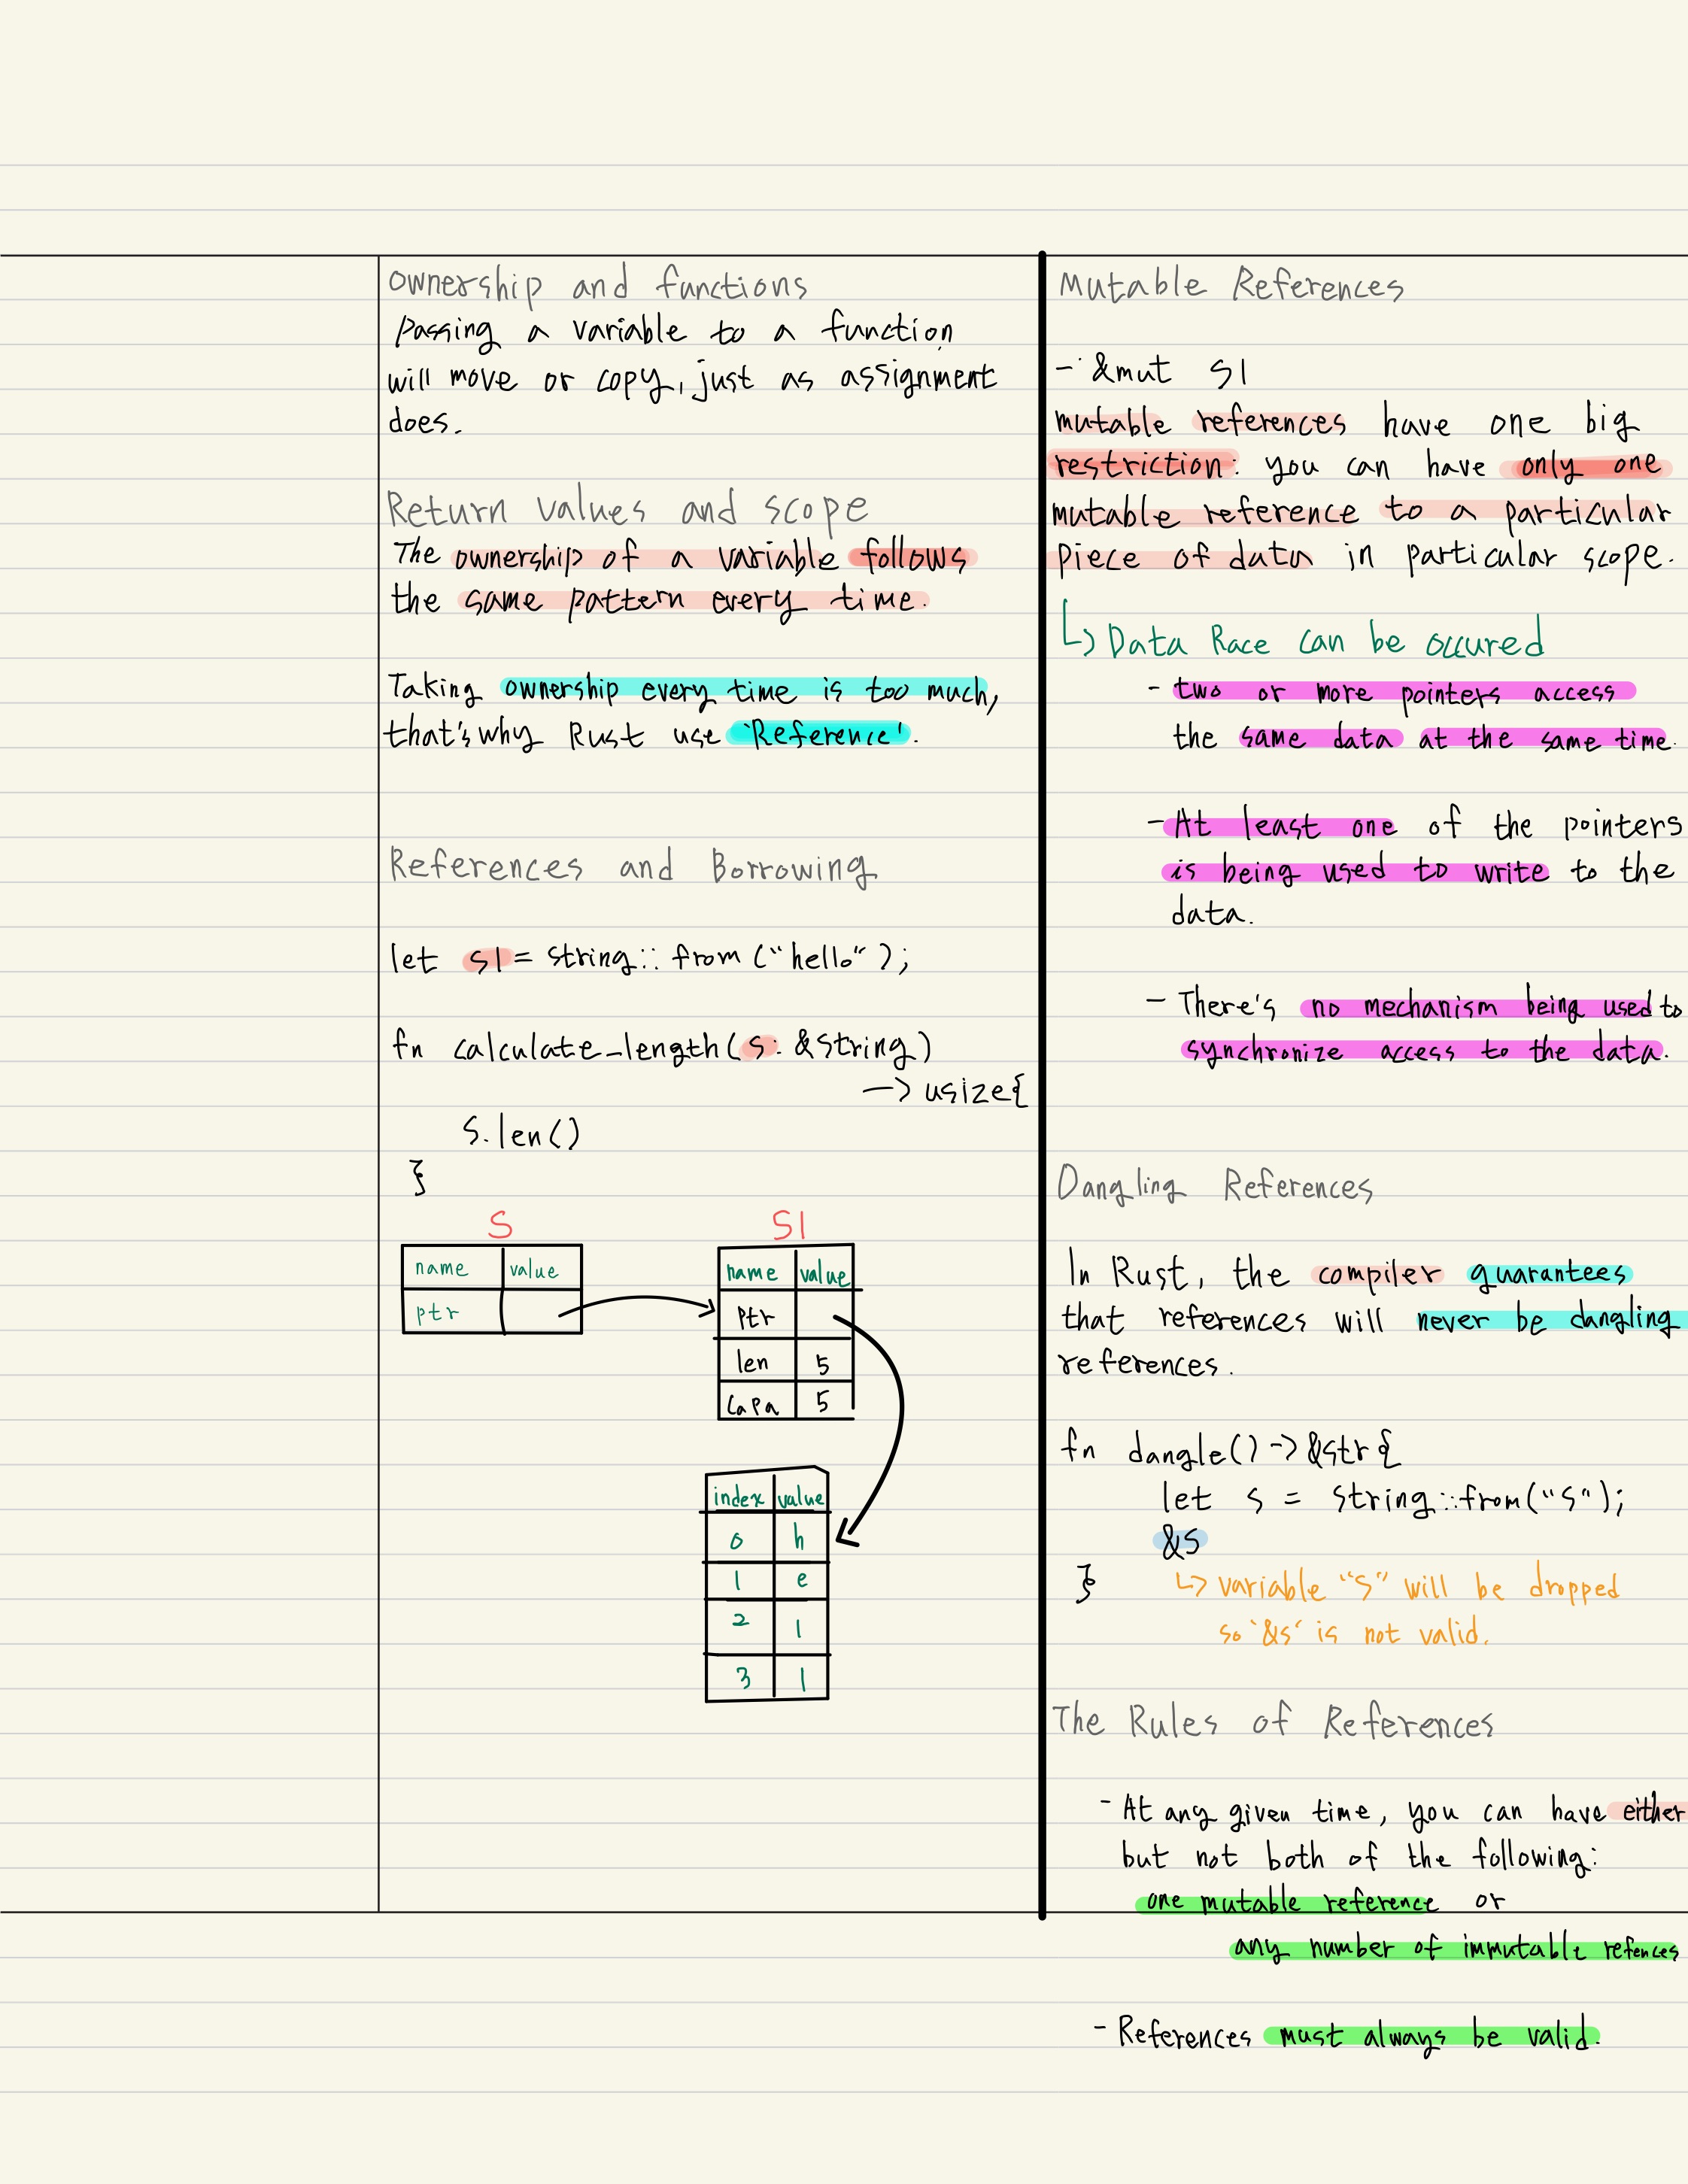 Ownership and functions
Passing a variable to a function
will move or copy, just as assignment
does.
Return values and scope
The ownership of a variable follows
the same pattern every time.
Taking ownership every time is too much,
that's why Rust use 'Reference'.
References and Borrowing
let s1 = string::from("hello");
fn calculate_length(s: &string)
-> usize{
s.len()
}
S
name value
ptr
S1
name value
ptr
len 5
capa 5
index value
0 h
1 e
2 l
3 l
Mutable References
- &mut S1
mutable references have one big
restriction: you can have only one
mutable reference to a particular
piece of data in particular scope.
↳ Data Race can be occured
- two or more pointers access
the same data at the same time.
- At least one of the pointers
is being used to write to the
data.
- There's no mechanism being used to
synchronize access to the data.
Dangling References
In Rust, the compiler guarantees
that references will never be dangling
references.
fn dangle() -> &str{
let s = string::from("s");
&s
}
↳ variable "s" will be dropped
so '&s' is not valid.
The Rules of References
- At any given time, you can have either
but not both of the following:
one mutable reference or
any number of immutable refences
- References must always be valid.